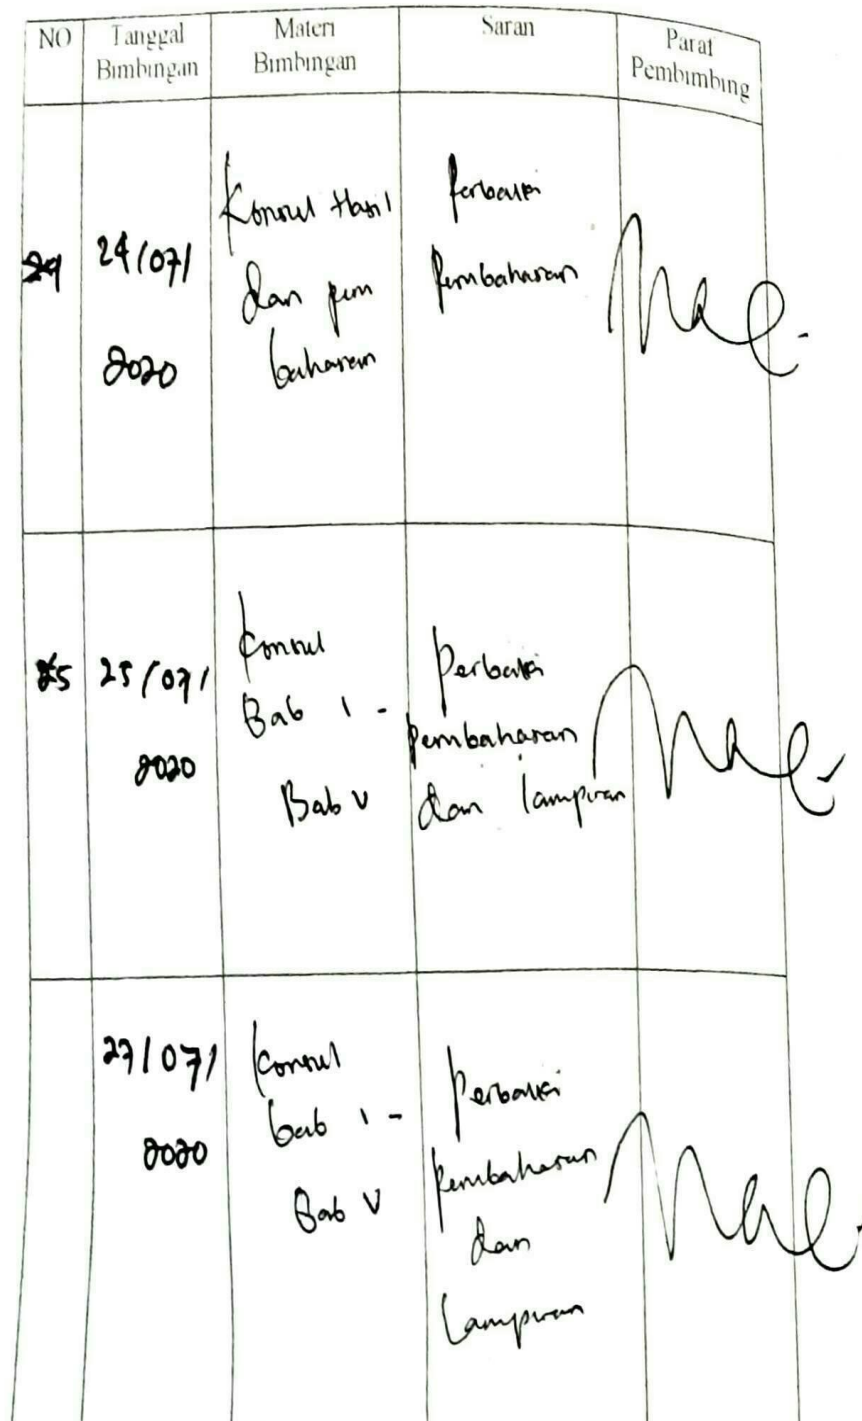 NO
Tanggal
Bimbingan
Materi
Bimbingan
Saran
Paraf
Pembimbing
24/07/
2020
Konsul Hasil
dan pem
bahasan
Perbaiki
Pembahasan
25
25/07/
2020
Konsul
Bab I -
Bab V
Perbaiki
pembahasan
dan lampiran
27/07/
2020
Konsul
bab I -
Bab V
Perbaiki
Pembahasan
dan
Lampiran